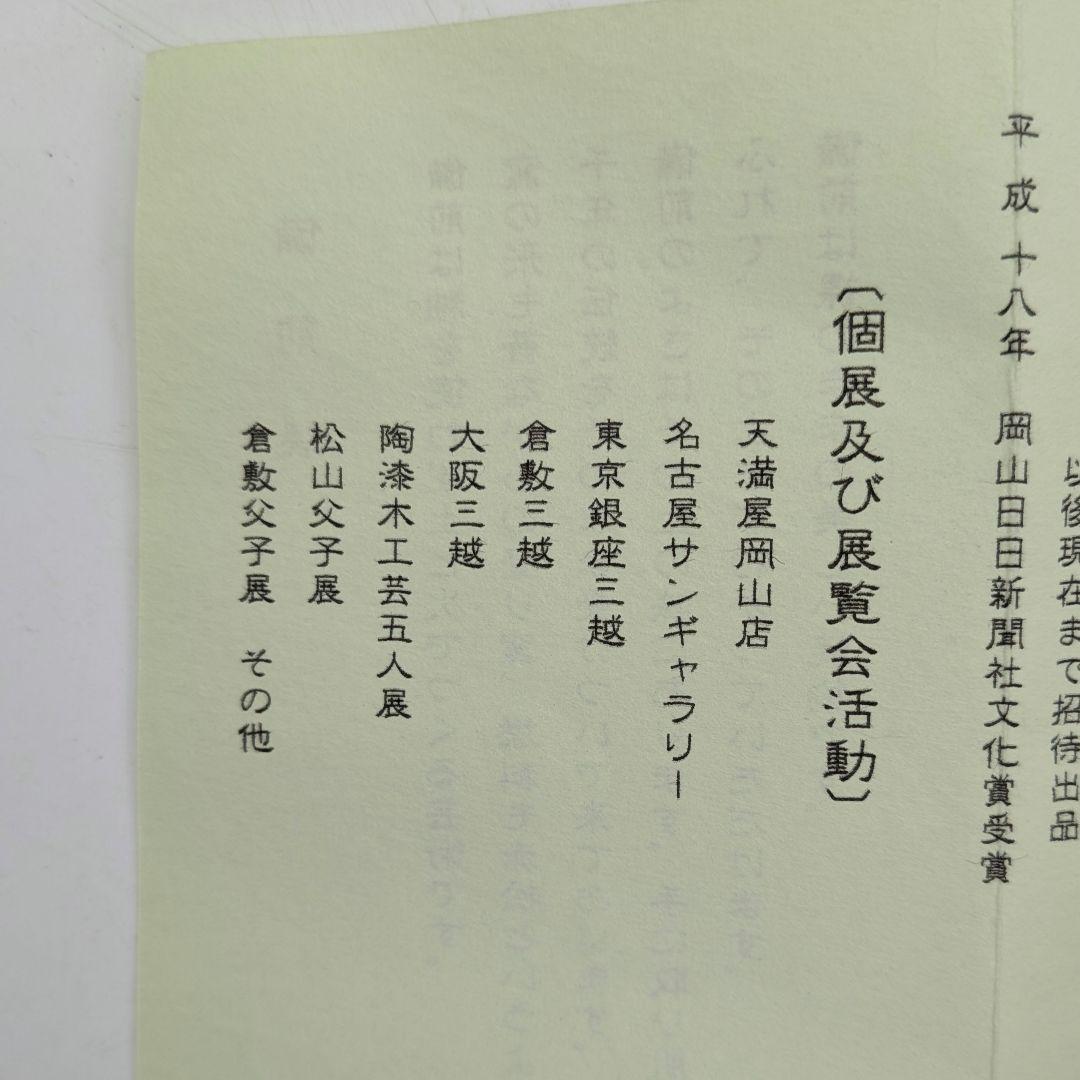 以後現在まで招待出品
平成十八年　岡山日日新聞社文化賞受賞
〔個展及び展覧会活動〕
天満屋岡山店
名古屋サンギャラリー
東京銀座三越
倉敷三越
大阪三越
陶漆木工芸五人展
松山父子展
倉敷父子展　その他